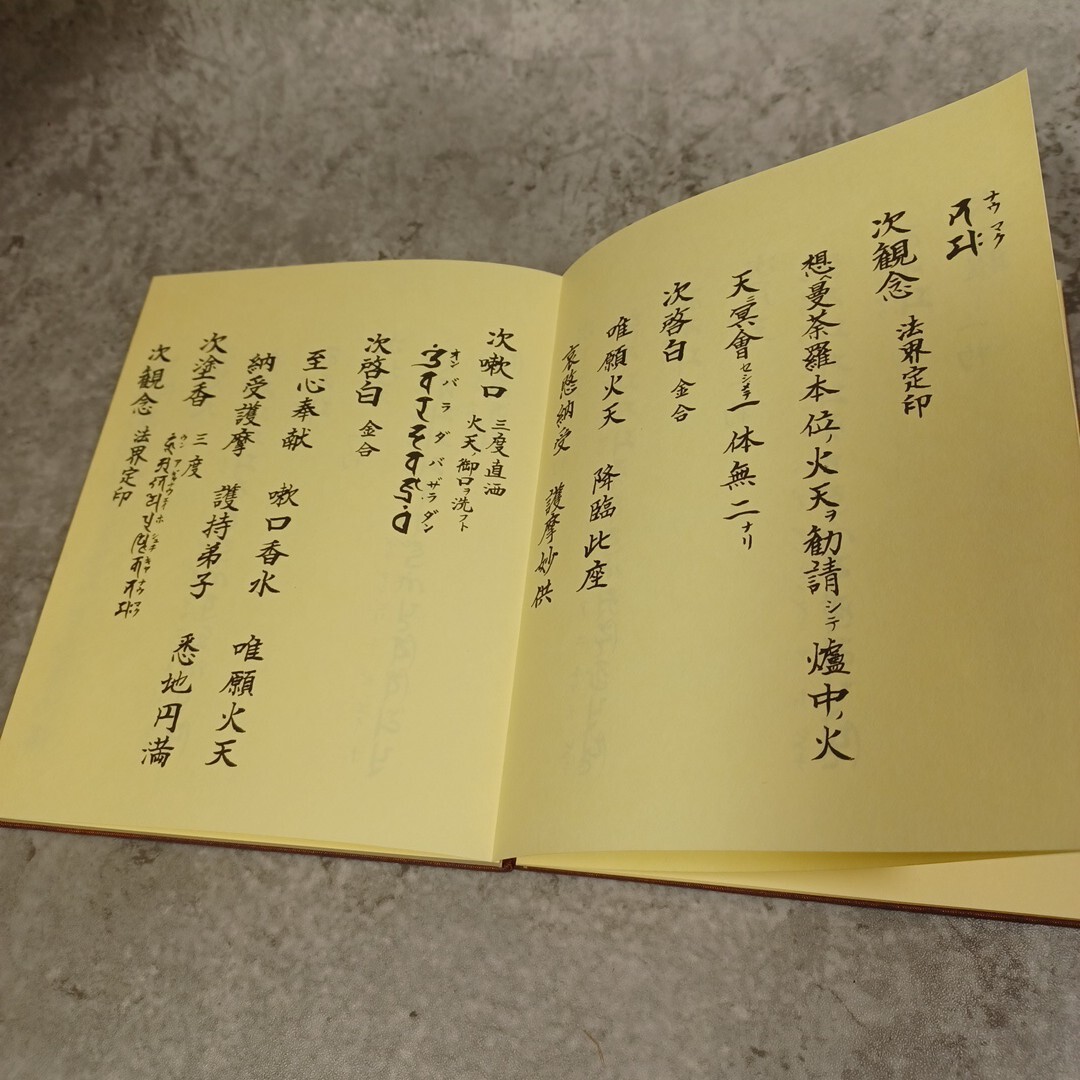 ナウ マク
次観念 法界定印
想ヘ曼荼羅本位ノ火天ヲ勧請シテ爐中ノ火
天ニ冥會セシメヨ一体無二ナリ
次啓白 金合
唯願火天 降臨此座
哀愍納受 護摩妙供
次嗽口 三度直洒
火天ノ御口ヲ洗フト
オン バ ラ ダ バ ザラ ダン
次啓白 金合
至心奉献 嗽口香水 唯願火天
納受護摩 護持弟子 悉地円満
次塗香 三度
次観念 法界定印